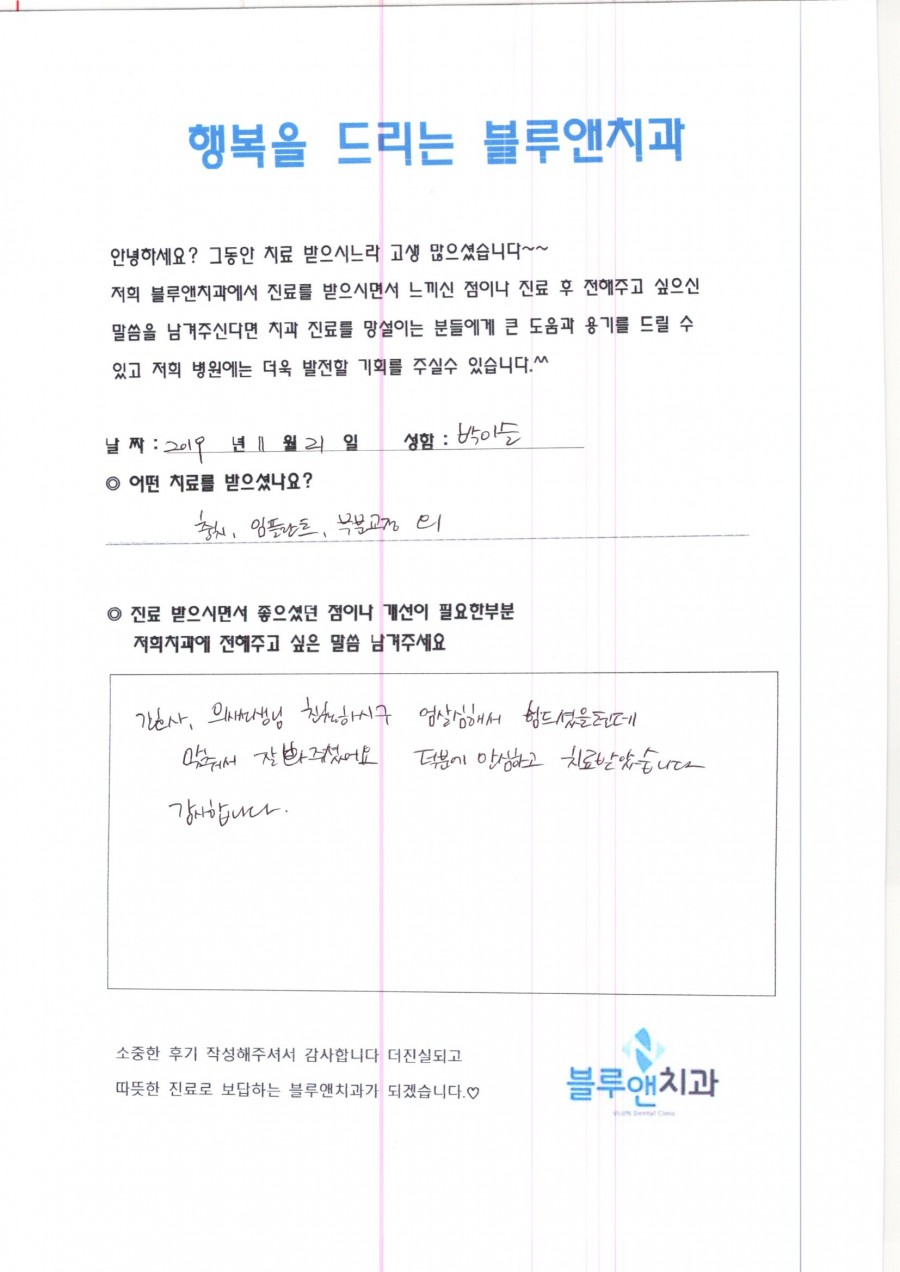 행복을 드리는 블루앤치과
안녕하세요? 그동안 치료 받으시느라 고생 많으셨습니다~~
저희 블루앤치과에서 진료를 받으시면서 느끼신 점이나 진료 후 전해주고 싶으신
말씀을 남겨주신다면 치과 진료를 망설이는 분들에게 큰 도움과 용기를 드릴 수
있고 저희 병원에는 더욱 발전할 기회를 주실수 있습니다.^^
날 짜 : 2019 년 11 월 21 일 성함 : 박이슬
◎ 어떤 치료를 받으셨나요?
충치, 임플란트, 부분교정
◎ 진료 받으시면서 좋으셨던 점이나 개선이 필요한부분
저희치과에 전해주고 싶은 말씀 남겨주세요
간호사, 의사선생님 친절하시구 엄살심해서 힘드셨을텐데
맞춰서 잘 봐주셨어요 덕분에 안심하고 치료받았습니다
감사합니다.
소중한 후기 작성해주셔서 감사합니다 더진실되고
따뜻한 진료로 보답하는 블루앤치과가 되겠습니다.♡
블루앤치과